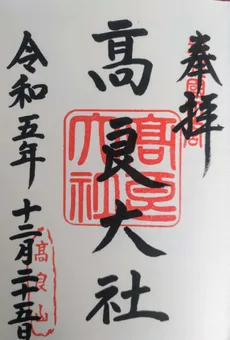 奉拝
髙良大社
髙良大社
令和五年 十二月二十五日
髙良山